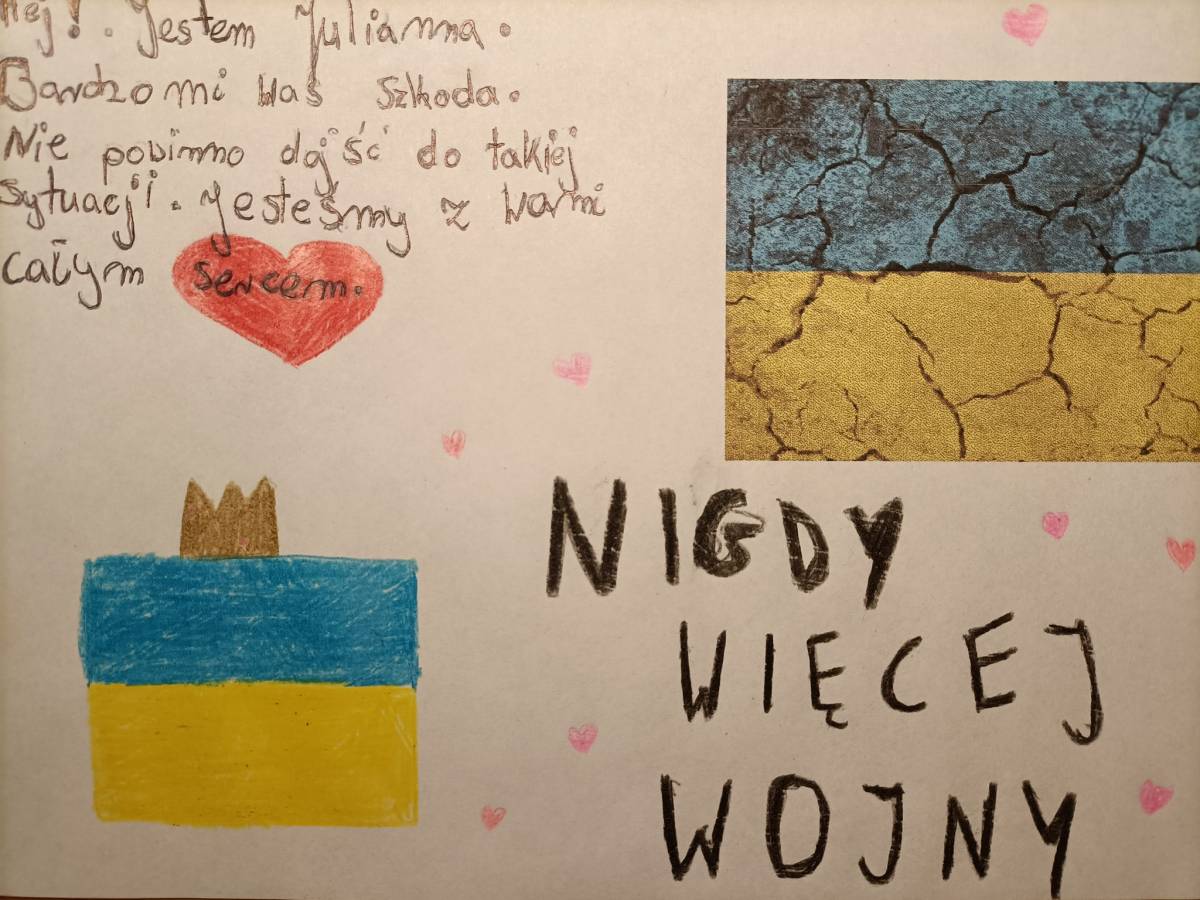 Hej! . Jestem Julianna.
Bardzo mi Was szkoda.
Nie povinno dojść do takiej
sytuacji. Jesteśmy z Wami
całym sercem.
NIGDY
WIĘCEJ
WOJNY